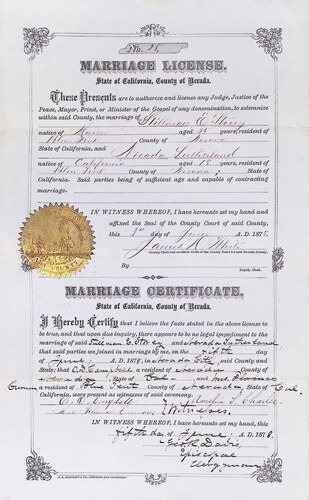 No. 25
MARRIAGE LICENSE.
State of California, County of Nevada.
These Presents are to authorize and license any Judge, Justice of the
Peace, Mayor, Priest, or Minister of the Gospel of any denomination, to solemnize
within said County, the marriage of Stillman E. Storey
native of Maine aged 35 years, resident of
Blue Tent County of Nevada
State of California, and Nevada Sutherland
native of California aged 18 years, resident of
Blue Tent County of Nevada, State of
California. Said parties being of sufficient age and capable of contracting
marriage.
IN WITNESS WHEREOF, I have hereunto set my hand and
affixed the Seal of the County Court of said County,
this day of June A.D. 1878.
James K.
County Clerk and ex-officio Clerk of the County Court in and for Nevada County.
By
Deputy Clerk.
MARRIAGE CERTIFICATE.
State of California, County of Nevada.
I Hereby Certify that I believe the facts stated in the above license to
be true, and that upon due inquiry, there appears to be no legal impediment to the
marriage of said Stillman E. Storey and Nevada Sutherland
that said parties were joined in marriage by me, on the fifth day
of June, A.D. 1878, in Nevada City said County and
State; that C. D. Campbell a resident of Nevada County
of Nevada State of Cal. and Mrs Florence
a resident of Blue Tent County of Nevada Cal.
California, were present as witnesses of said ceremony.
Witnesses.
IN WITNESS WHEREOF, I have hereunto set my hand, this
fifth day of June, A.D. 1878.
Geo. R. Davis,
Episcopal
Clergyman